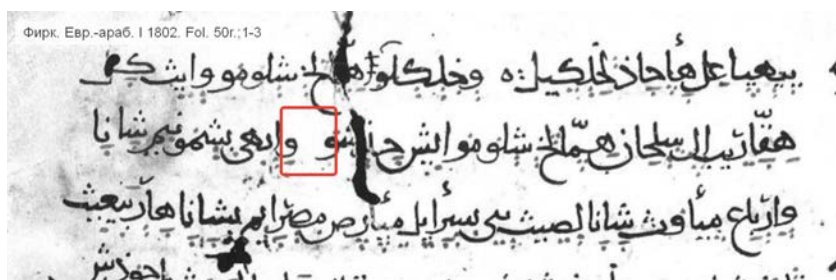 Фирк. Евр.-араб. I 1802. Fol. 50r.;1-3
ييهيا عل هأحاذ لخلكيل ه وخلكلو شلومو وايث كل
هقّاريب ال سلحان همّالخ شلومو ايش وايهي بشمونيم شانا
وارباع ميأوث شانا لصيث بني يسرأيل ميأرص مصرايم بشانا هاربيعيث